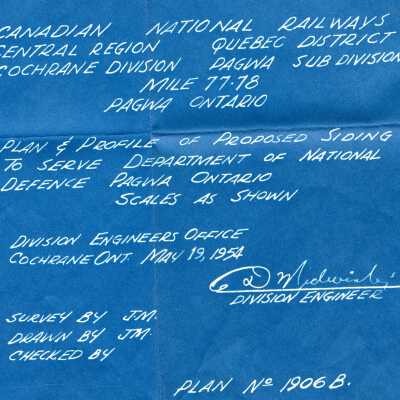 CANADIAN NATIONAL RAILWAYS
CENTRAL REGION QUEBEC DISTRICT
COCHRANE DIVISION PAGWA SUB DIVISION
MILE 77.78
PAGWA ONTARIO
PLAN & PROFILE OF PROPOSED SIDING
TO SERVE DEPARTMENT OF NATIONAL
DEFENCE PAGWA ONTARIO
SCALES AS SHOWN
DIVISION ENGINEERS OFFICE
COCHRANE ONT. MAY 19, 1954
DIVISION ENGINEER
SURVEY BY J.M.
DRAWN BY J.M.
CHECKED BY
PLAN No 1906 B.